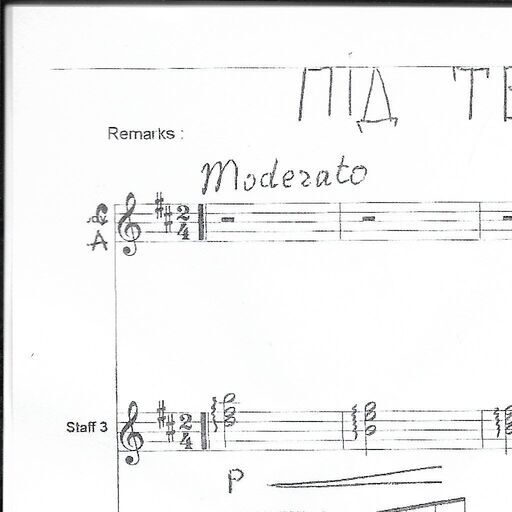 ПІД ТВ
Remarks :
Moderato
C
A
2
4
Staff 3
2
4
p